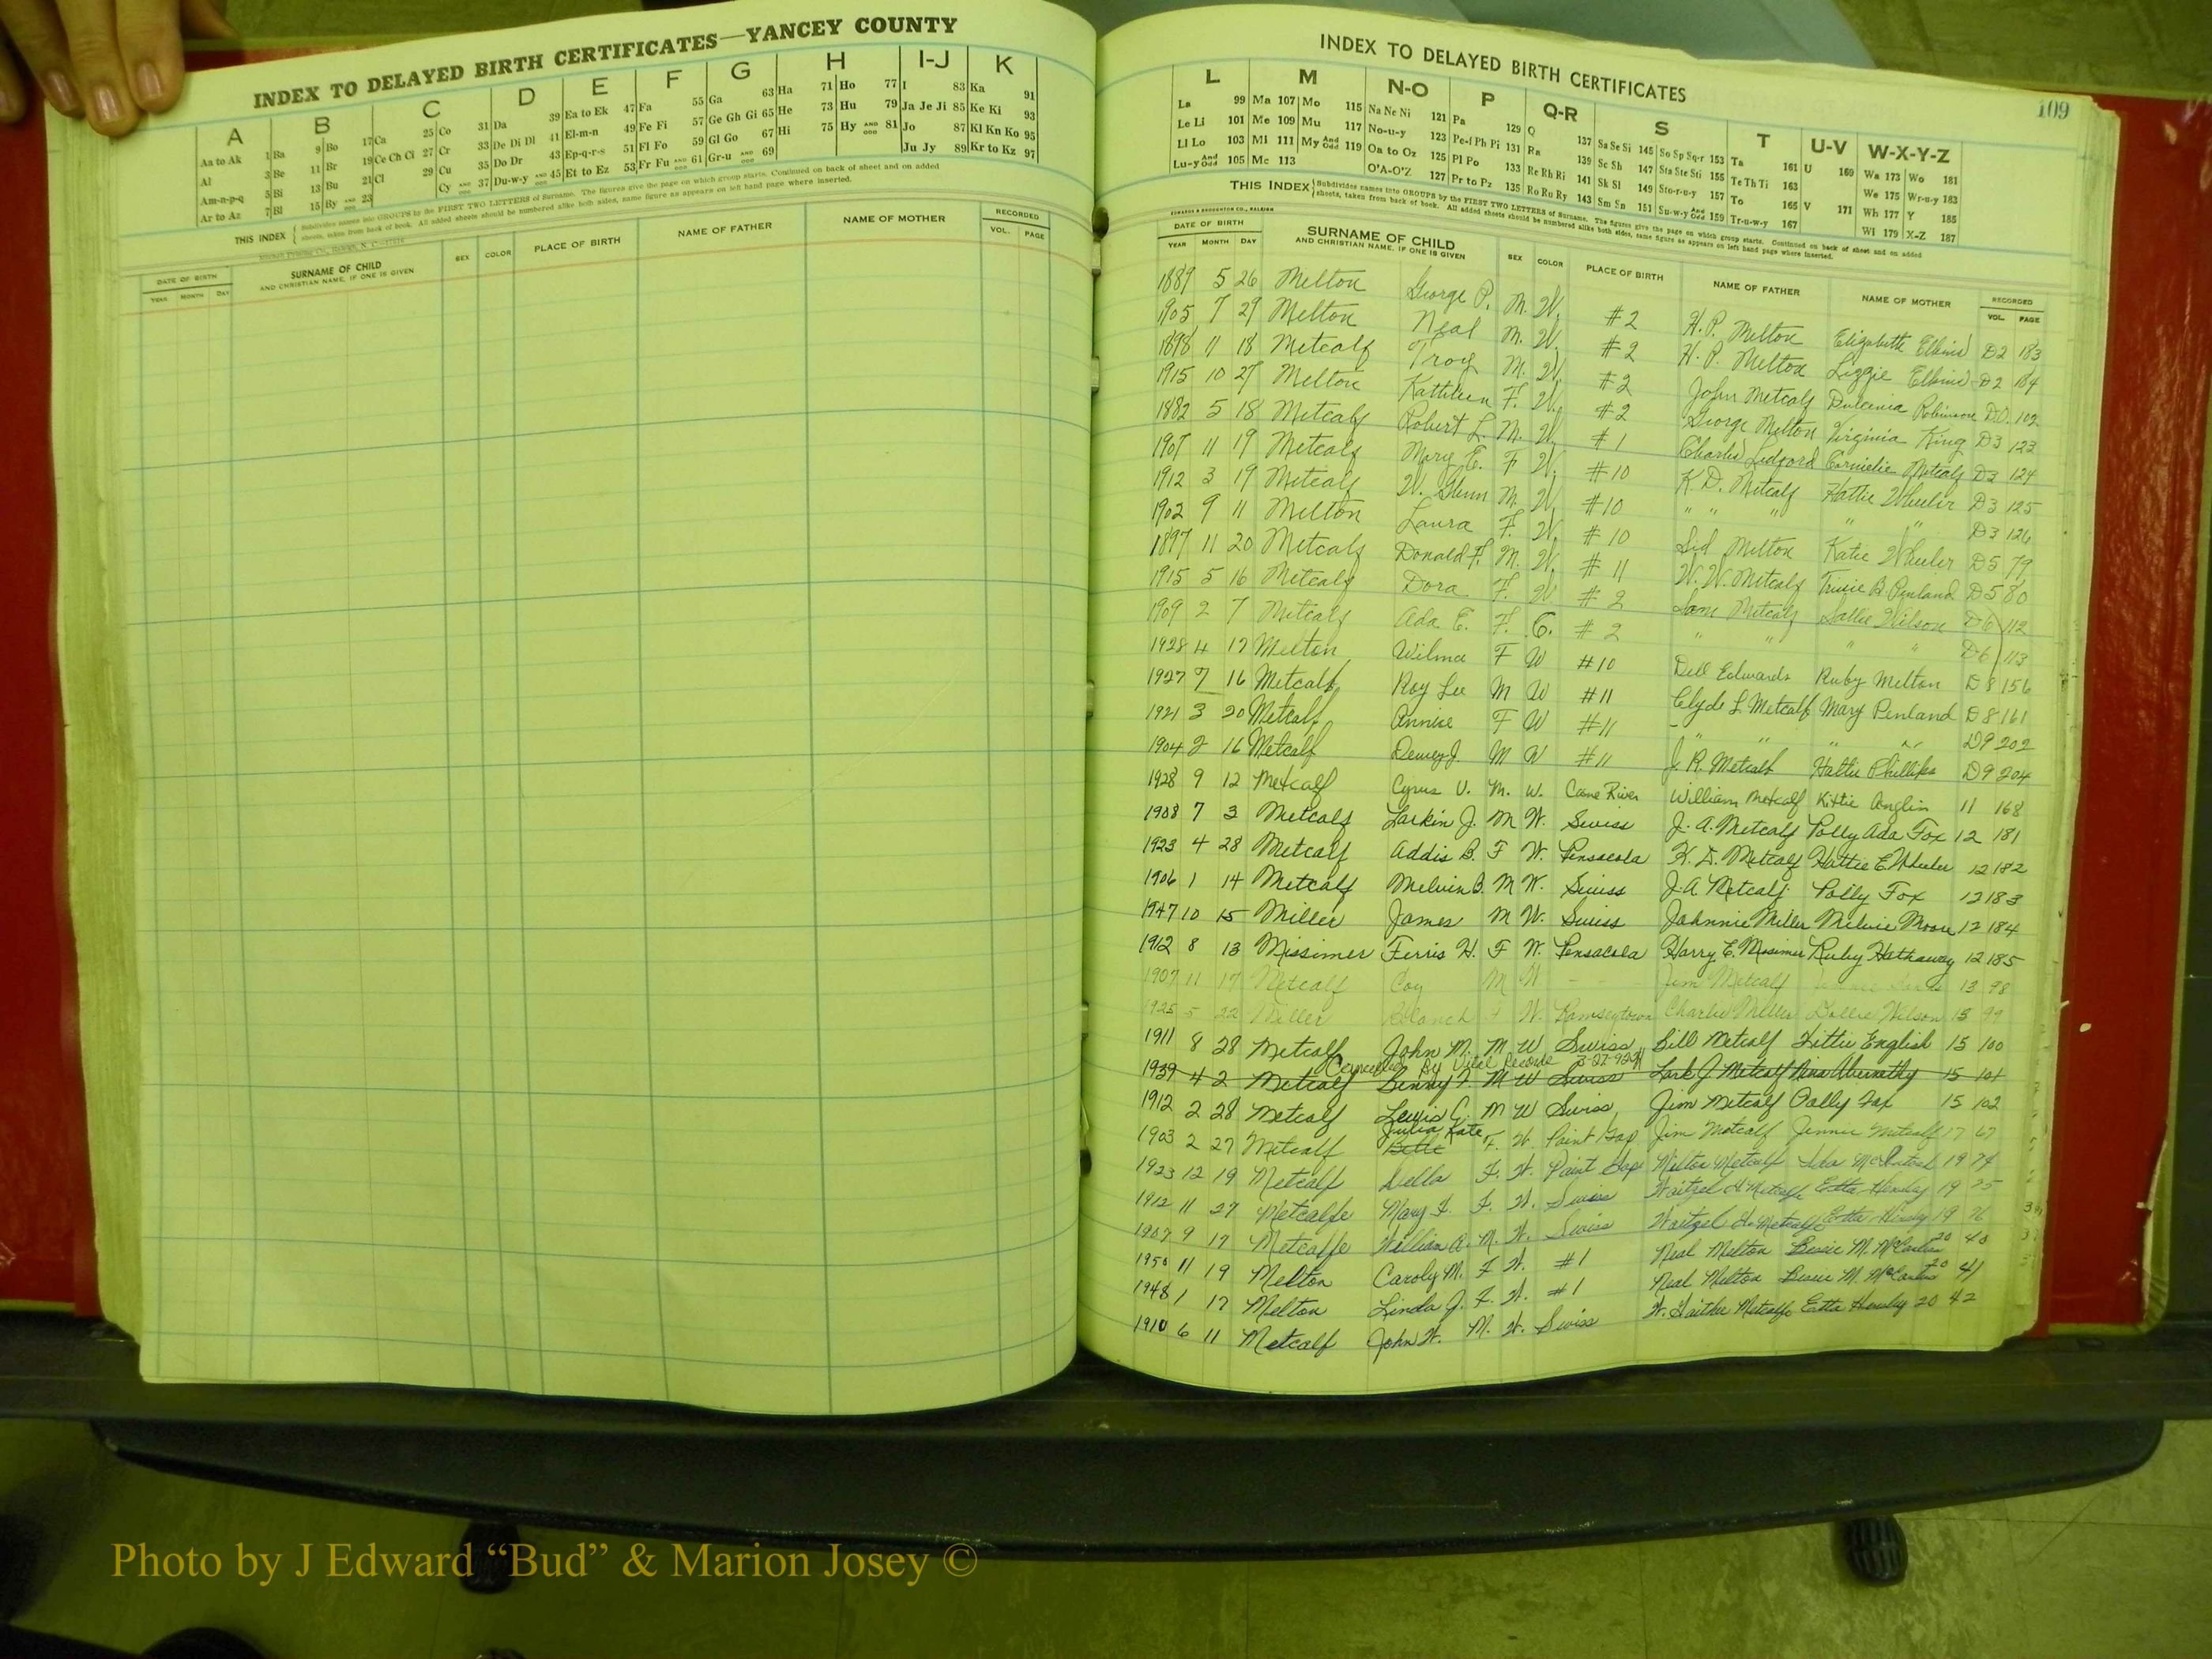 INDEX TO DELAYED BIRTH CERTIFICATES—YANCEY COUNTY
A B C D E F G H I-J K
Aa to Ak 1 Ba 9 Bo 17 Ca 25 Co 31 Da 39 Ea to Ek 47 Fa 55 Ga 63 Ha 71 Ho 77 I 83 Ka 91
Al 3 Be 11 Br 19 Ce Ch Ci 27 Cr 33 De Di Dl 41 El-m-n 49 Fe Fi 57 Ge Gh Gi 65 He 73 Hu 79 Ja Je Ji 85 Ke Ki 93
Am-n-p-q 5 Bi 13 Bu 21 Cl 29 Cu 35 Do Dr 43 Ep-q-r-s 51 Fl Fo 59 Gl Go 67 Hi 75 Hy AND ODD 81 Jo 87 Kl Kn Ko 95
Ar to Az 7 Bl 15 By AND ODD 23 Cy AND ODD 37 Du-w-y AND ODD 45 Et to Ez 53 Fr Fu AND ODD 61 Gr-u AND ODD 69 Ju Jy 89 Kr to Kz 97
THIS INDEX { Subdivides names into GROUPS by the FIRST TWO LETTERS of Surname. The figures give the page on which group starts. Continued on back of sheet and on added
sheets, taken from back of book. All added sheets should be numbered alike both sides, same figure as appears on left hand page where inserted.
DATE OF BIRTH SURNAME OF CHILD SEX COLOR PLACE OF BIRTH NAME OF FATHER NAME OF MOTHER RECORDED
YEAR MONTH DAY AND CHRISTIAN NAME, IF ONE IS GIVEN VOL. PAGE
INDEX TO DELAYED BIRTH CERTIFICATES
109
L M N-O P Q-R S T U-V W-X-Y-Z
La 99 Ma 107 Mo 115 Na Ne Ni 121 Pa 129 Q 137 Sa Se Si 145 So Sp Sq-r 153 Ta 161 U 169 Wa 173 Wo 181
Le Li 101 Me 109 Mu 117 No-u-y 123 Pe-f Ph Pi 131 Ra 139 Sc Sh 147 Sta Ste Sti 155 Te Th Ti 163 We 175 Wr-u-y 183
Ll Lo 103 Mi 111 My And Odd 119 Oa to Oz 125 Pl Po 133 Re Rh Ri 141 Sk Sl 149 Sto-r-u-y 157 To 165 V 171 Wh 177 Y 185
Lu-y And Odd 105 Mc 113 O'A-O'Z 127 Pr to Pz 135 Ro Ru Ry 143 Sm Sn 151 Su-w-y And Odd 159 Tr-u-w-y 167 Wi 179 X-Z 187
THIS INDEX { Subdivides names into GROUPS by the FIRST TWO LETTERS of Surname. The figures give the page on which group starts. Continued on back of sheet and on added
sheets, taken from back of book. All added sheets should be numbered alike both sides, same figure as appears on left hand page where inserted.
EDWARDS & BROUGHTON CO., RALEIGH
DATE OF BIRTH SURNAME OF CHILD SEX COLOR PLACE OF BIRTH NAME OF FATHER NAME OF MOTHER RECORDED
YEAR MONTH DAY AND CHRISTIAN NAME, IF ONE IS GIVEN VOL. PAGE
1889 5 26 Melton George P. M. W. #2 H. P. Melton Elizabeth Elkins D2 183
1905 7 29 Melton Neal M. W. #2 H. P. Melton Lizzie Elkins D2 184
1898 11 18 Metcalf Troy M. W. #2 John Metcalf Dulcenia Robinson D0. 102
1915 10 27 Melton Kathleen F. W. #2 George Melton Virginia King D3 123
1882 5 18 Metcalf Robert L. M. W. #1 Charles Ledford Cornielie Metcalf D3 124
1907 11 19 Metcalf Mary E. F W. #10 K. D. Metcalf Hattie Wheeler D3 125
1912 3 19 Metcalf W. Glenn M. W. #10 " " " " " D3 126
1902 9 11 Melton Laura F. W. #10 Sid Melton Katie Wheeler D5 79
1897 11 20 Metcalf Donald F. M. W. #11 W. W. Metcalf Trixie B. Penland D5 80
1915 5 16 Metcalf Dora F. W. #2 Sam Metcalf Sallie Wilson D6 112
1909 2 7 Metcalf Ada E. F. C. #2 " " " " D6 113
1928 4 17 Melton Wilma F W #10 Dell Edwards Ruby Melton D8 156
1927 7 16 Metcalf Roy Lee M W #11 Clyde L Metcalf Mary Penland D8 161
1921 3 20 Metcalf Annise F W #11 " " " " D9 202
1904 2 16 Metcalf Dewey J. M W #11 J. R. Metcalf Hattie Phillips D9 204
1928 9 12 Metcalf Cyrus V. M. W. Cane River William Metcalf Kittie Anglin 11 168
1908 7 3 Metcalf Larkin J. M W. Swiss J. A. Metcalf Polly Ada Fox 12 181
1923 4 28 Metcalf Addis B. F W. Pensacola K. D. Metcalf Hattie E. Wheeler 12 182
1906 1 14 Metcalf Melvin B. M W. Swiss J. A Metcalf Polly Fox 12 183
1947 10 15 Miller James M W. Swiss Johnnie Miller Melvie Moore 12 184
1912 8 13 Missimer Ferris H. F W. Pensacola Harry E. Missimer Ruby Hathaway 12 185
1907 11 17 Metcalf Coy M W - - - Jim Metcalf 13 98
1925 5 22 Miller Blanch F W. Ramseytown Charlie Miller Dollie Wilson 15 99
1911 8 28 Metcalf John M. M W Swiss Bill Metcalf Kittie English 15 100
Cancelled By Vital Records 3-27-92
1939 4 2 Metcalf Benny M W Swiss Lark J Metcalf Nina Abernathy 15 101
1912 2 28 Metcalf Lewis C. M W Swiss Jim Metcalf Polly Fox 15 102
Julia Kate
1903 2 27 Metcalf F. W. Paint Gap Jim Metcalf Jennie Metcalf 17 67
1923 12 19 Metcalf Della F. W. Paint Gap Milton Metcalf Ida McIntosh 19 74
1912 11 27 Metcalfe Mary F. W. Swiss Waitzel H Metcalfe Etta Hensley 19 75
1907 9 17 Metcalfe William A. M. W. Swiss Waitzel H. Metcalfe Etta Hensley 19 76
1950 11 19 Melton Caroly M. F W. #1 Neal Melton Bessie M. 20 40
1948 1 17 Melton Linda J. F. W. #1 Neal Melton Bessie M. 20 41
1910 6 11 Metcalf John W. M. W. Swiss W. Gaither Metcalfe Etta Hensley 20 42
Photo by J Edward “Bud” & Marion Josey ©